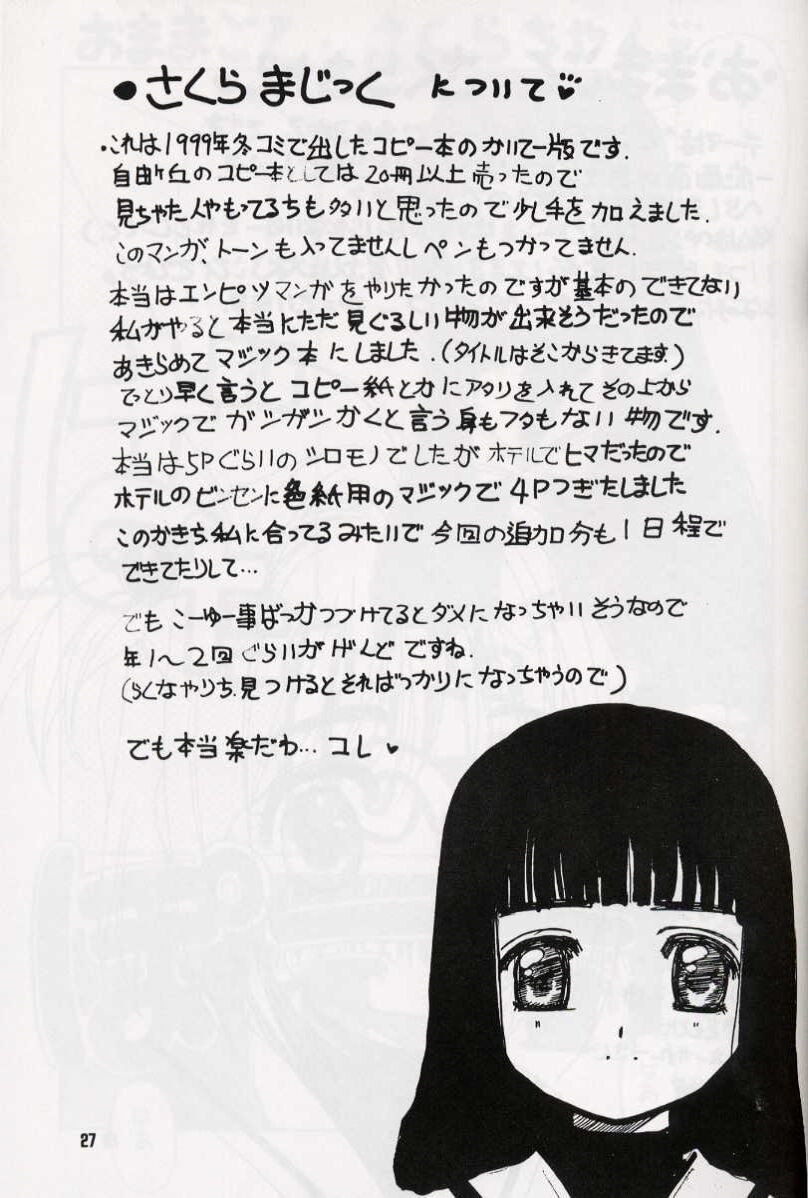 ●さくら まじっく について♡
・これは1999年冬コミで出したコピー本のかいてー版です.
自由ヶ丘のコピー本としては20冊以上売ったので
見ちゃた人やもってるちも多いと思ったので少し手を加えました.
このマンガ、トーンも入ってませんしペンもつかってません.
本当はエンピツマンガをやりたかったのですが基本のできてない
私がやると本当にただ見ぐるしい物が出来そうだったので
あきらめてマジック本にしました.(タイトルはそこからきてます.)
てっとり早く言うと コピー紙とかにアタリを入れてその上から
マジックでガシガシかくと言う身もフタもない物です.
本当は5Pぐらいのシロモノでしたがホテルでヒマだったので
ホテルのビンセンに色紙用のマジックで4Pつぎたしました
このかきち、私に合ってるみたいで今回の追加分も1日程で
できてたりして…
でもこーゆー事ばっかつづけてるとダメになっちゃいそうなので
年1〜2回ぐらいがげんどですね.
(らくなやりち、見つけるとそればっかりになっちゃうので)
でも本当楽だわ…コレ♥
27